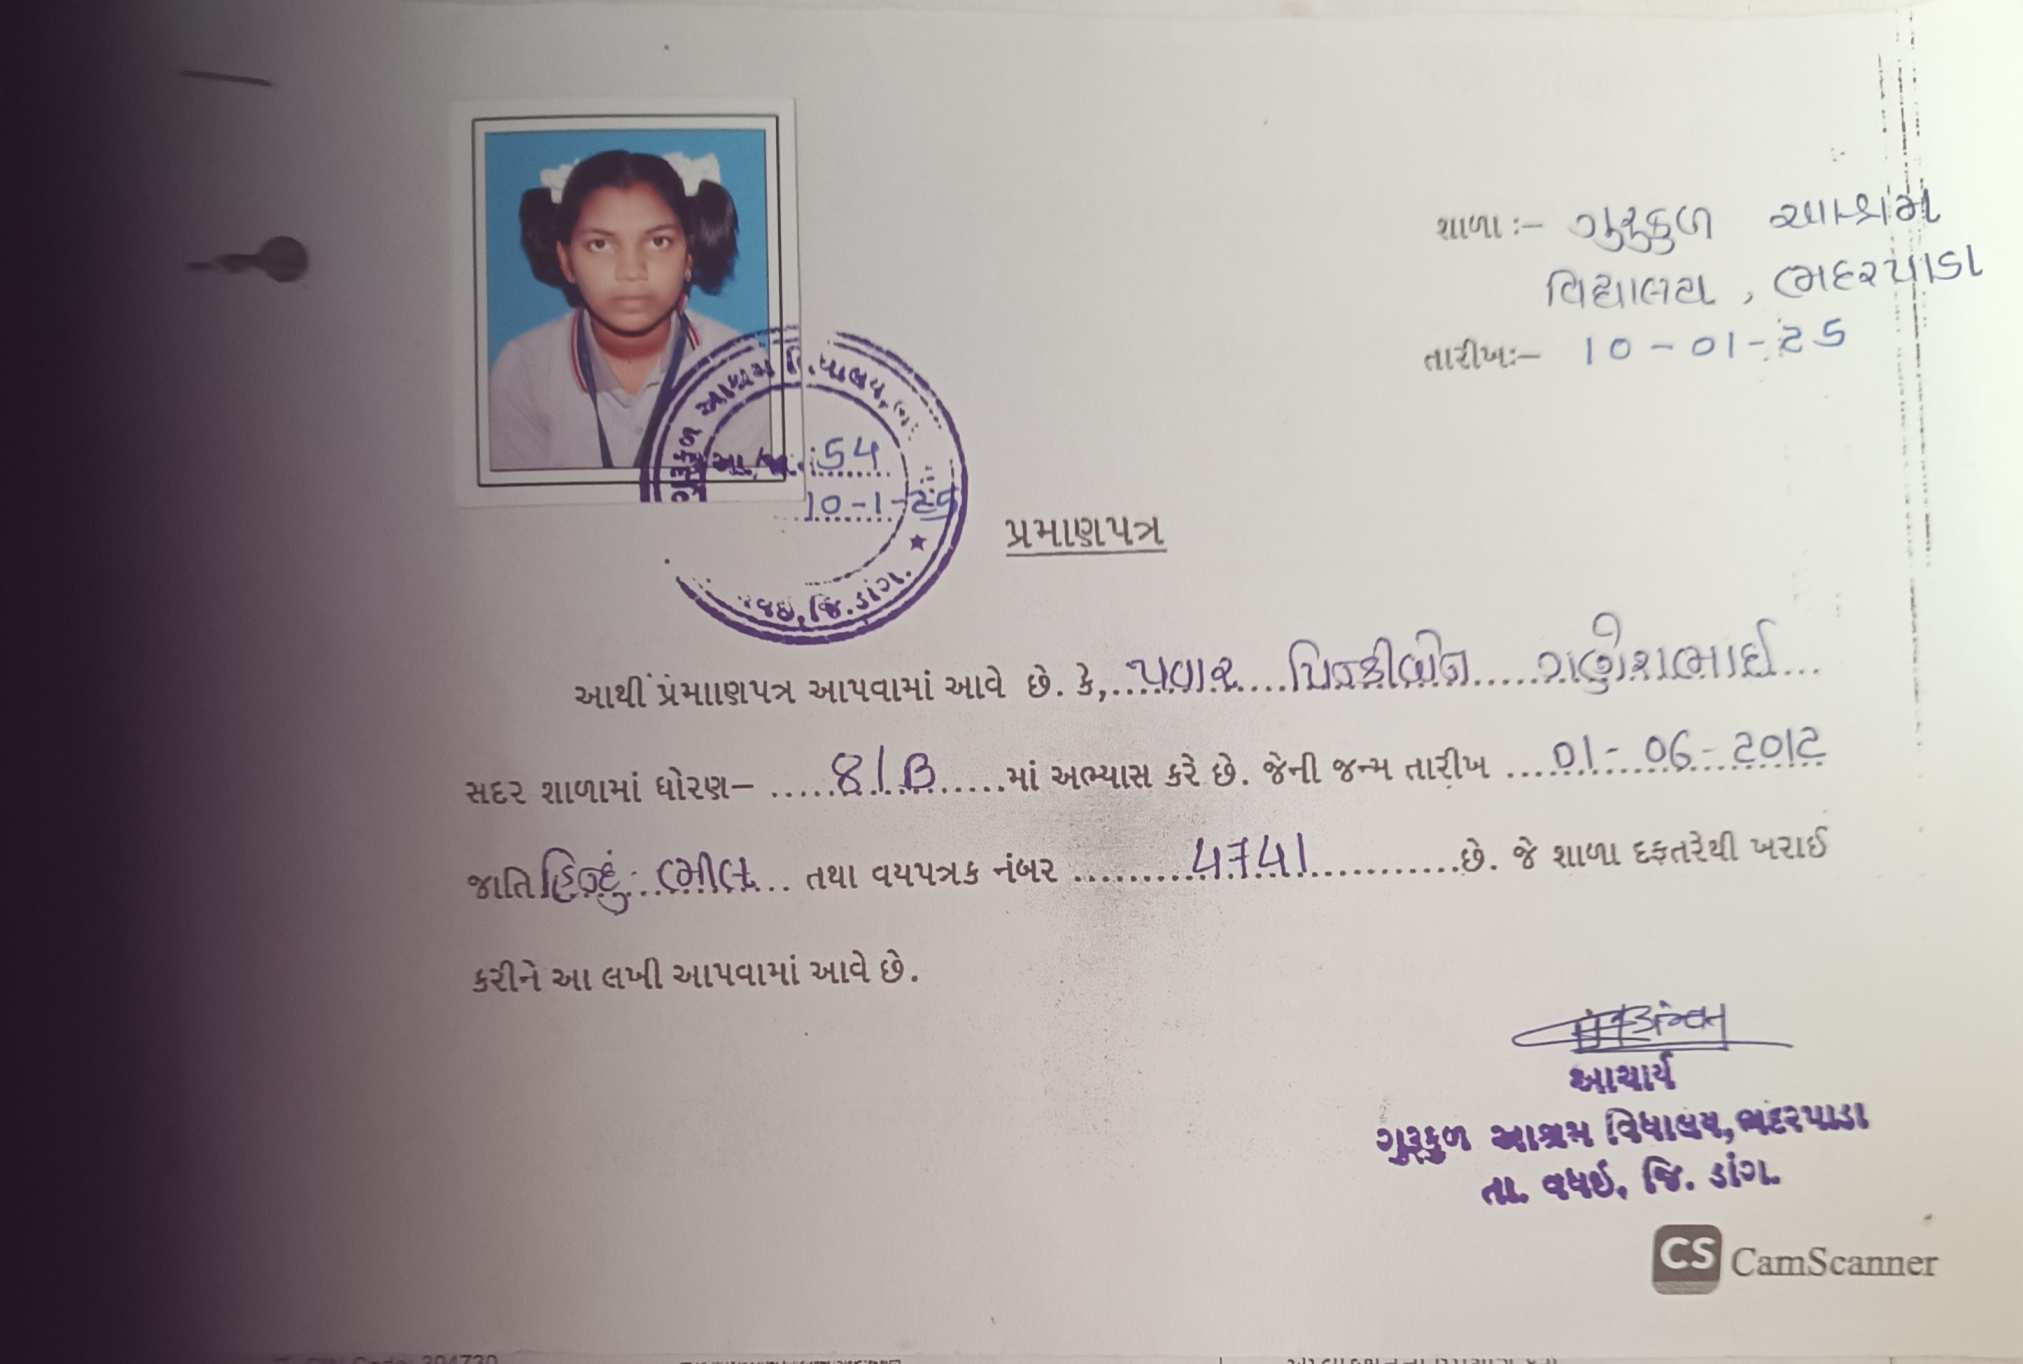 શાળા :– ગુરુકુળ આશ્રમ
વિદ્યાલય , ભદરપાડા
તારીખઃ– 10-01-25
આશ્રમ
54
10-1-25
જિ.ડાંગ.
પ્રમાણપત્ર
આથી પ્રમાણપત્ર આપવામાં આવે છે. કે, પવાર પિન્કીબેન ગણેશભાઈ
સદર શાળામાં ધોરણ– 8/B માં અભ્યાસ કરે છે. જેની જન્મ તારીખ 01-06-2012
જાતિ હિન્દુ ભીલ તથા વયપત્રક નંબર 4741 છે. જે શાળા દફતરેથી ખરાઈ
કરીને આ લખી આપવામાં આવે છે.
આચાર્ય
ગુરૂકુળ આશ્રમ વિધાલય, ભદરપાડા
તા. વઘઈ, જિ. ડાંગ.
CS CamScanner